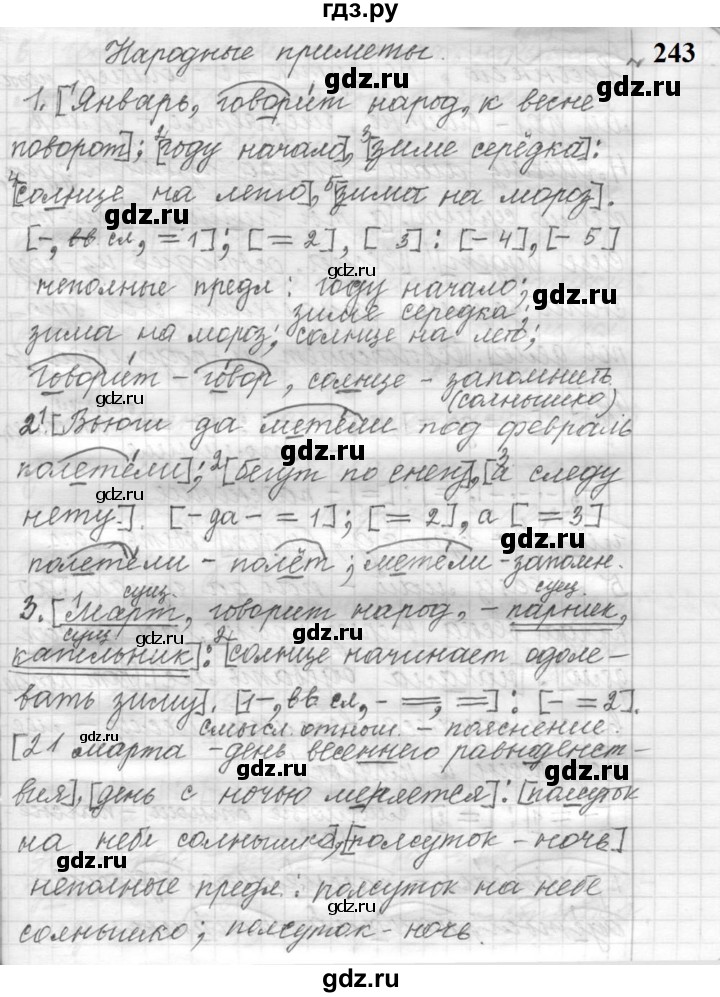 гдз.ру
Народные приметы. № 243
1. [¹Январь, говорит народ, к весне
поворот]; ²[году начало], ³[зиме серёдка]:
⁴[солнце на лето], ⁵[зима на мороз].
[-, вв сл, = 1]; [= 2], [ 3] : [- 4], [- 5]
неполные предл : году начало;
зиме середка;
зима на мороз; солнце на лето;
Говорит - говор, солнце - запомнить
(солнышко)
2. ¹[Вьюги да метели под февраль
полетели]; ²[бегут по снегу], [³а следу
нету]. [- да - = 1]; [= 2], а [= 3]
полетели - полёт; метели - запомн.
сущ. сущ.
3. [¹Март, говорит народ, - парник,
сущ
капельник]: ²[солнце начинает одоле-
вать зиму]. [1-, вв сл, - =, =] : [- = 2].
смысл. отнош. - пояснение.
[21 марта - день весеннего равноденст-
вия], [день с ночью меряется]: [полсуток
на небе солнышко], [полсуток - ночь]
неполные предл : полсуток на небе
солнышко; полсуток - ночь.
gdz.ru
gdz.ru
gdz.ru
gdz.ru
gdz.ru
gdz.ru
gdz.ru
gdz.ru
gdz.ru
gdz.ru
gdz.ru
gdz.ru
gdz.ru
gdz.ru
гдз.ру